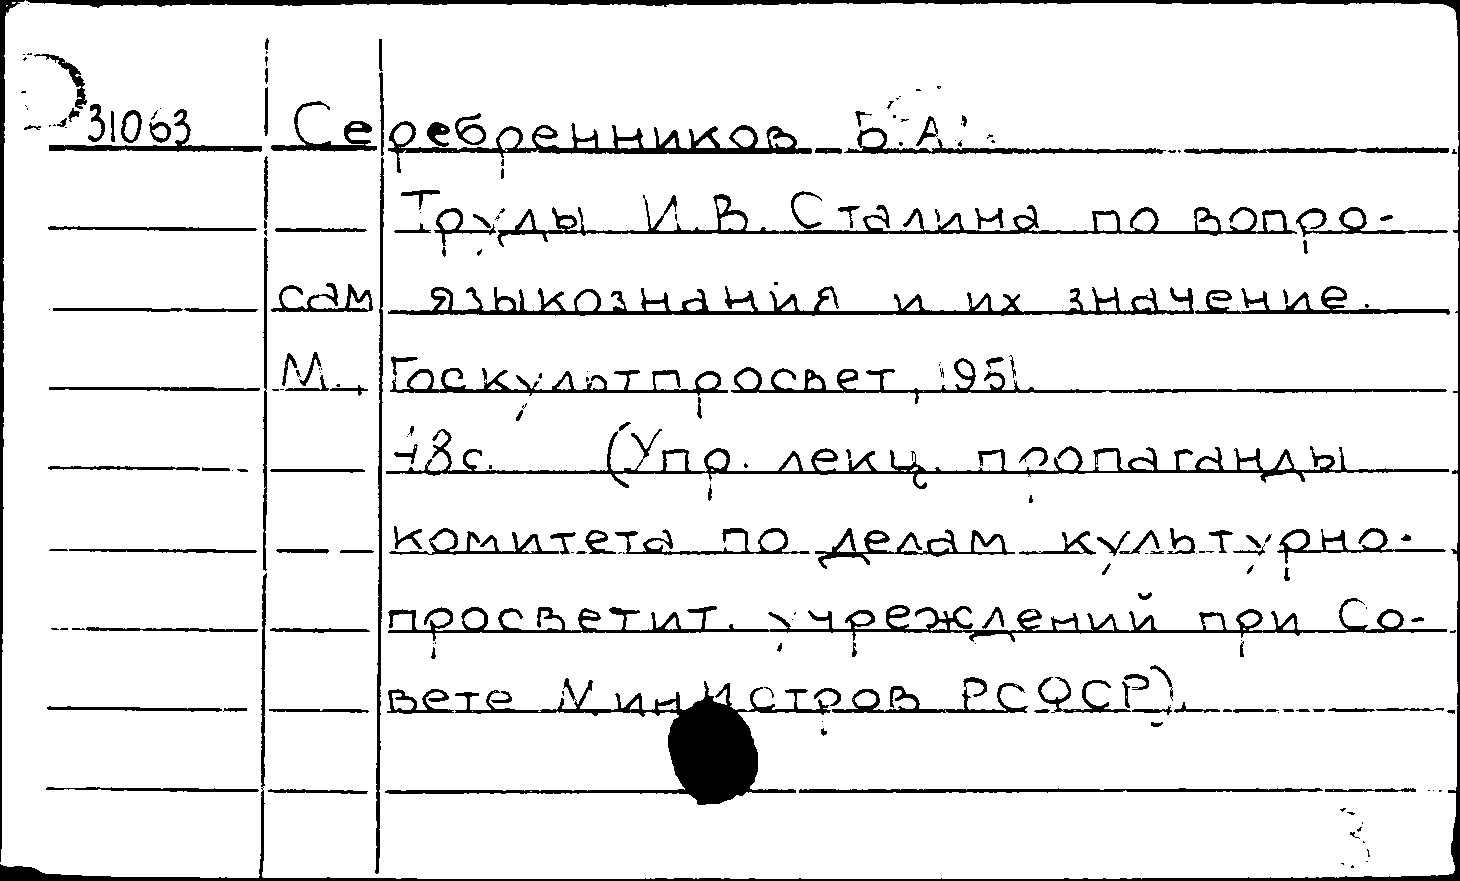 31063 Серебренников Б.А.
Труды И.В. Сталина по вопро-
сам языкознания и их значение.
М., Госкультпросвет, 1951.
48с. (Упр. лекц. пропаганды
комитета по делам культурно-
просветит. учреждений при Со-
вете Министров РСФСР).
3